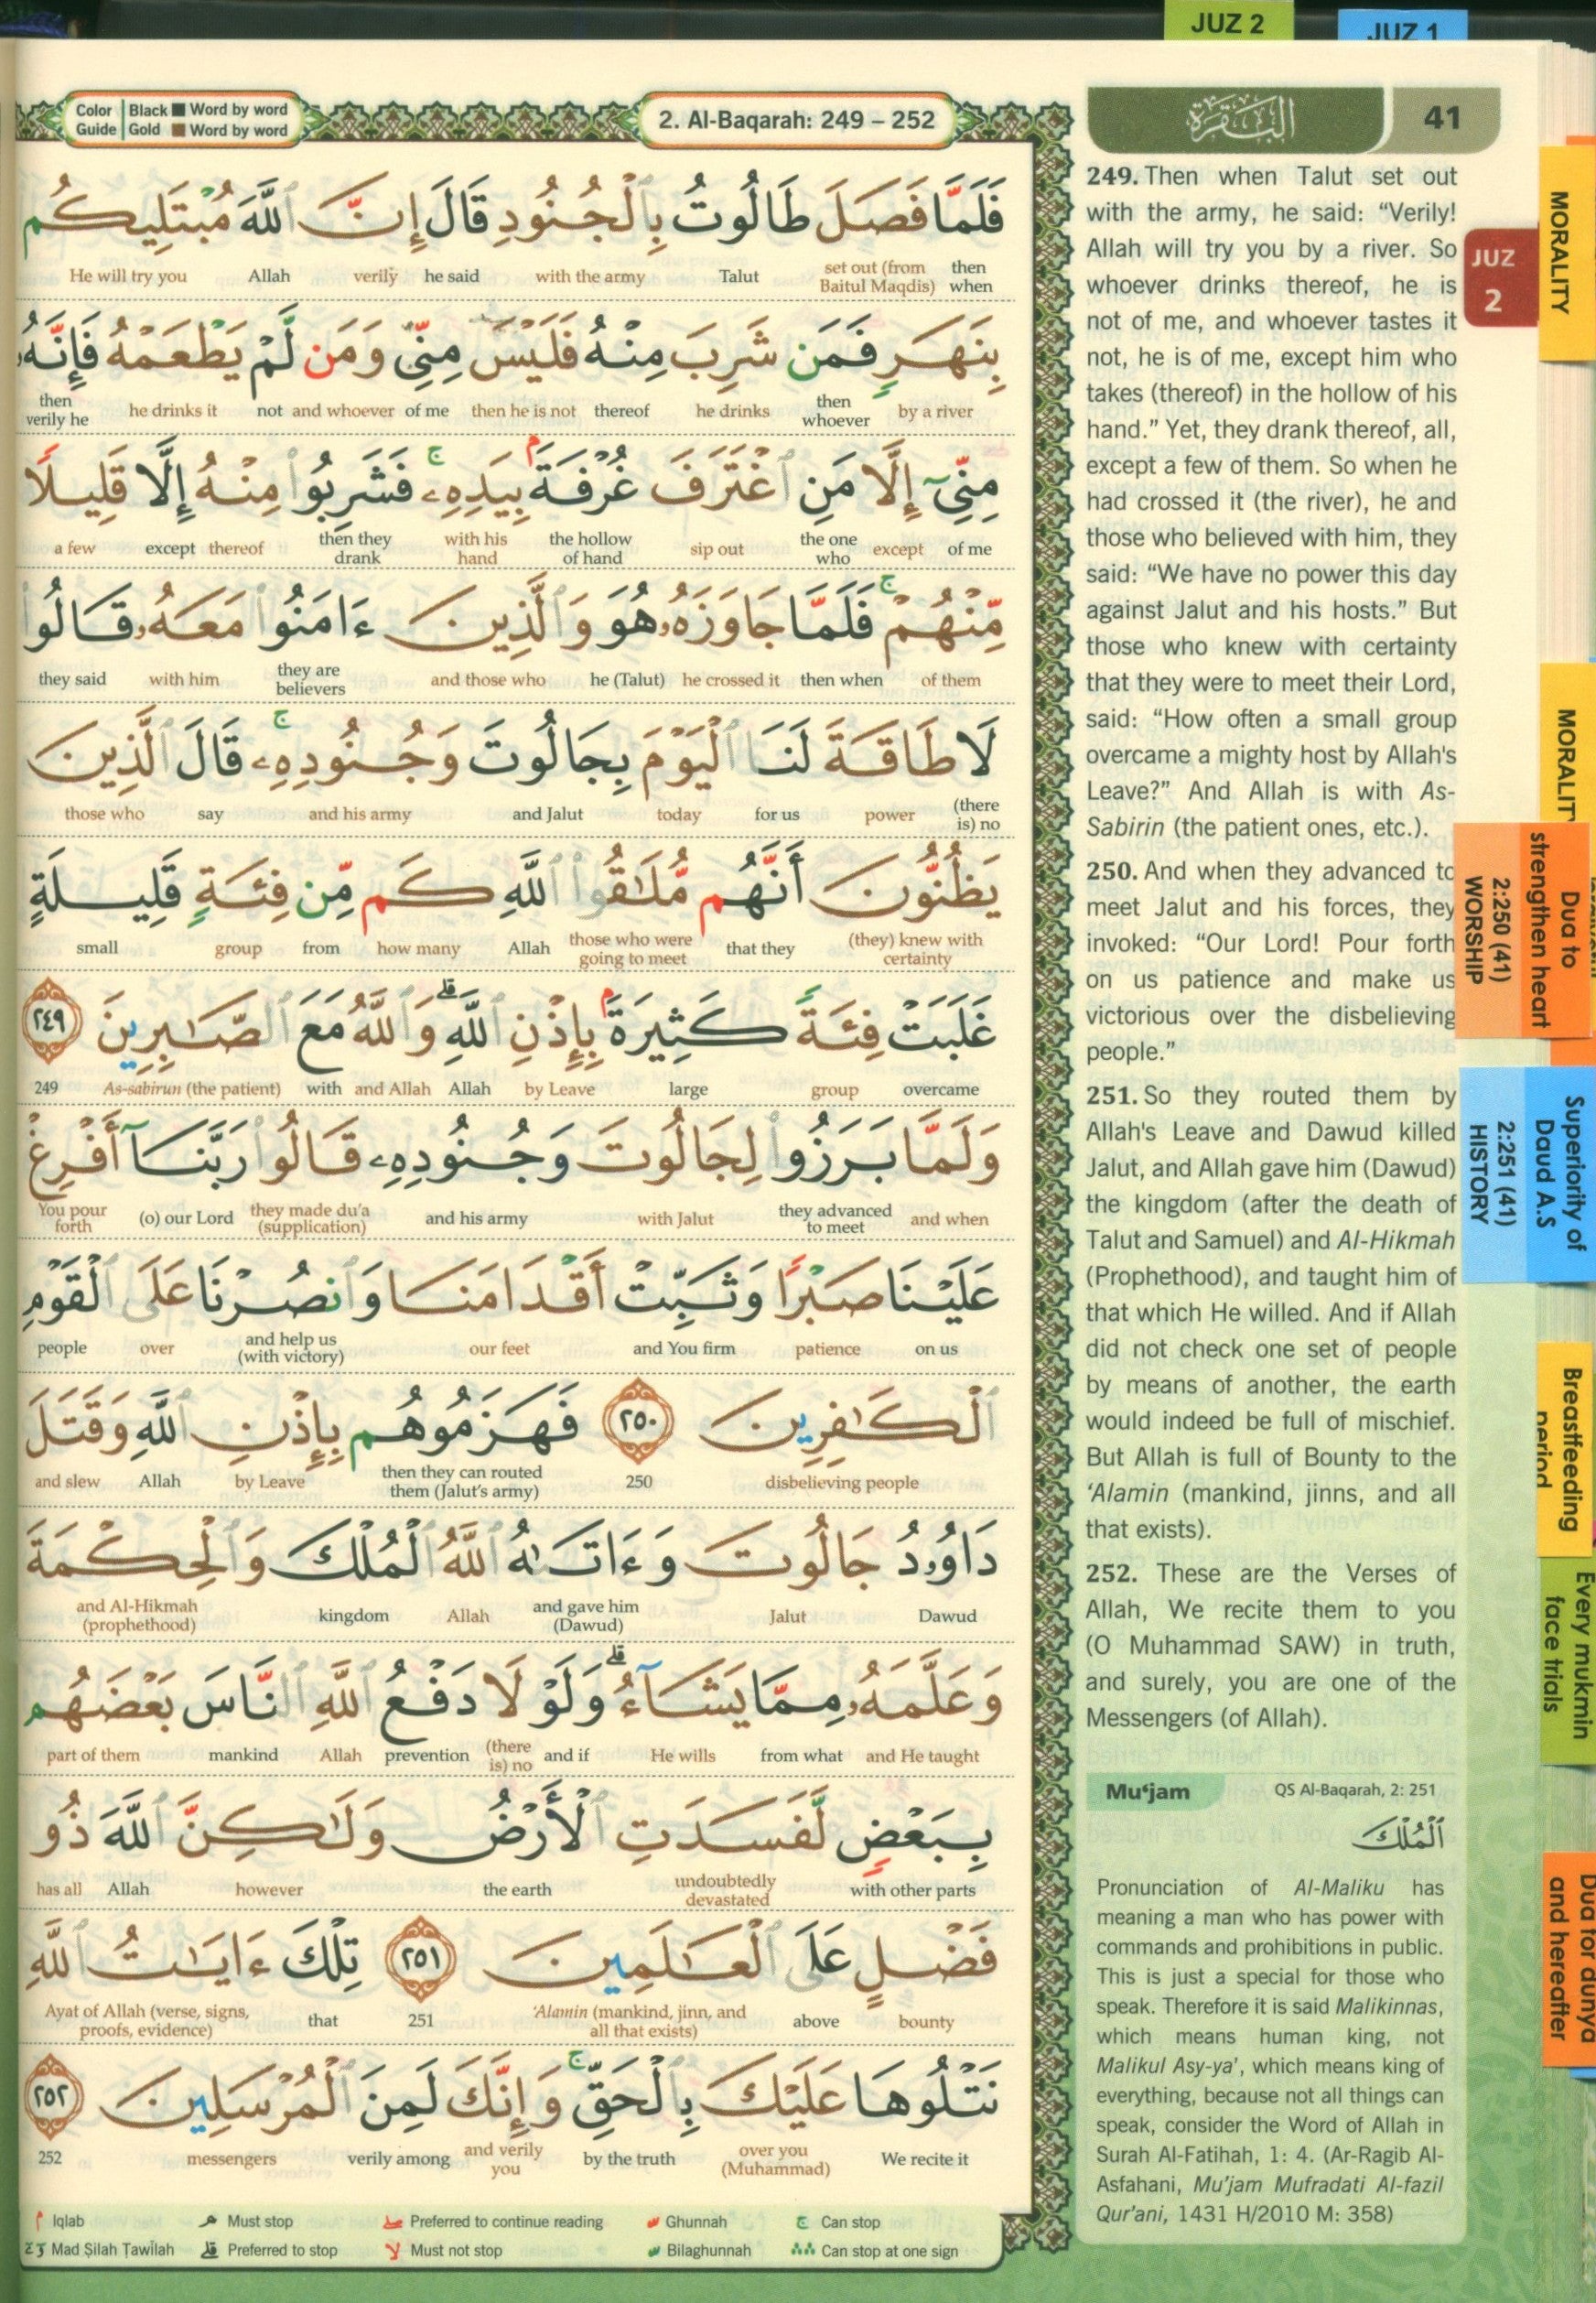 JUZ 2
JUZ 1
Color Guide
Black ■ Word by word
Gold ■ Word by word
2. Al-Baqarah: 249 – 252
البقرة
41
فَلَمَّا فَصَلَ طَالُوتُ بِٱلْجُنُودِ قَالَ إِنَّ ٱللَّهَ مُبْتَلِيكُم
then when
set out (from Baitul Maqdis)
Talut
with the army
he said
verily
Allah
He will try you
بِنَهَرٍ فَمَن شَرِبَ مِنْهُ فَلَيْسَ مِنِّى وَمَن لَّمْ يَطْعَمْهُ فَإِنَّهُۥ
by a river
then whoever
he drinks
thereof
then he is not
of me
and whoever
not
he drinks it
then verily he
مِنِّىٓ إِلَّا مَنِ ٱغْتَرَفَ غُرْفَةًۢ بِيَدِهِۦ ۚ فَشَرِبُوا۟ مِنْهُ إِلَّا قَلِيلًا
of me
except
the one who
sip out
the hollow of hand
with his hand
then they drank
thereof
except
a few
مِّنْهُمْ ۚ فَلَمَّا جَاوَزَهُۥ هُوَ وَٱلَّذِينَ ءَامَنُوا۟ مَعَهُۥ قَالُوا۟
of them
then when
he crossed it
he (Talut)
and those who
they are believers
with him
they said
لَا طَاقَةَ لَنَا ٱلْيَوْمَ بِجَالُوتَ وَجُنُودِهِۦ ۚ قَالَ ٱلَّذِينَ
(there is) no
power
for us
today
and Jalut
and his army
say
those who
يَظُنُّونَ أَنَّهُم مُّلَٰقُوا۟ ٱللَّهِ كَم مِّن فِئَةٍ قَلِيلَةٍ
(they) knew with certainty
that they
those who were going to meet
Allah
how many
from
group
small
غَلَبَتْ فِئَةً كَثِيرَةًۢ بِإِذْنِ ٱللَّهِ ۗ وَٱللَّهُ مَعَ ٱلصَّٰبِرِينَ ٢٤٩
overcame
group
large
by Leave
Allah
and Allah
with
As-sabirun (the patient)
249
وَلَمَّا بَرَزُوا۟ لِجَالُوتَ وَجُنُودِهِۦ قَالُوا۟ رَبَّنَآ أَفْرِغْ
and when
they advanced to meet
with Jalut
and his army
they made du'a (supplication)
(o) our Lord
You pour forth
عَلَيْنَا صَبْرًا وَثَبِّتْ أَقْدَامَنَا وَٱنصُرْنَا عَلَى ٱلْقَوْمِ
on us
patience
and You firm
our feet
and help us (with victory)
over
people
ٱلْكَٰفِرِينَ ٢٥٠ فَهَزَمُوهُم بِإِذْنِ ٱللَّهِ وَقَتَلَ
disbelieving people
250
then they can routed them (Jalut's army)
by Leave
Allah
and slew
دَاوُۥدُ جَالُوتَ وَءَاتَىٰهُ ٱللَّهُ ٱلْمُلْكَ وَٱلْحِكْمَةَ
Dawud
Jalut
and gave him (Dawud)
Allah
kingdom
and Al-Hikmah (prophethood)
وَعَلَّمَهُۥ مِمَّا يَشَآءُ ۗ وَلَوْ لَا دَفْعُ ٱللَّهِ ٱلنَّاسَ بَعْضَهُم
and He taught
from what
He wills
and if
(there is) no
prevention
Allah
mankind
part of them
بِبَعْضٍ لَّفَسَدَتِ ٱلْأَرْضُ وَلَٰكِنَّ ٱللَّهَ ذُو
with other parts
undoubtedly devastated
the earth
however
Allah
has all
فَضْلٍ عَلَى ٱلْعَٰلَمِينَ ٢٥١ تِلْكَ ءَايَٰتُ ٱللَّهِ
bounty
above
'Alamin (mankind, jinn, and all that exists)
251
that
Ayat of Allah (verse, signs, proofs, evidence)
نَتْلُوهَا عَلَيْكَ بِٱلْحَقِّ ۚ وَإِنَّكَ لَمِنَ ٱلْمُرْسَلِينَ ٢٥٢
We recite it
over you (Muhammad)
by the truth
and verily you
verily among
messengers
252
Iqlab
Must stop
Preferred to continue reading
Ghunnah
Can stop
Mad Ṣilah Ṭawīlah
Preferred to stop
Must not stop
Bilaghunnah
Can stop at one sign
249. Then when Talut set out
with the army, he said: “Verily!
Allah will try you by a river. So
whoever drinks thereof, he is
not of me, and whoever tastes it
not, he is of me, except him who
takes (thereof) in the hollow of his
hand.” Yet, they drank thereof, all,
except a few of them. So when he
had crossed it (the river), he and
those who believed with him, they
said: “We have no power this day
against Jalut and his hosts.” But
those who knew with certainty
that they were to meet their Lord,
said: “How often a small group
overcame a mighty host by Allah's
Leave?” And Allah is with As-
Sabirin (the patient ones, etc.).
250. And when they advanced to
meet Jalut and his forces, they
invoked: “Our Lord! Pour forth
on us patience and make us
victorious over the disbelieving
people.”
251. So they routed them by
Allah's Leave and Dawud killed
Jalut, and Allah gave him (Dawud)
the kingdom (after the death of
Talut and Samuel) and Al-Hikmah
(Prophethood), and taught him of
that which He willed. And if Allah
did not check one set of people
by means of another, the earth
would indeed be full of mischief.
But Allah is full of Bounty to the
‘Alamin (mankind, jinns, and all
that exists).
252. These are the Verses of
Allah, We recite them to you
(O Muhammad SAW) in truth,
and surely, you are one of the
Messengers (of Allah).
Mu‘jam
QS Al-Baqarah, 2: 251
ٱلْمُلْكَ
Pronunciation of Al-Maliku has
meaning a man who has power with
commands and prohibitions in public.
This is just a special for those who
speak. Therefore it is said Malikinnas,
which means human king, not
Malikul Asy-ya’, which means king of
everything, because not all things can
speak, consider the Word of Allah in
Surah Al-Fatihah, 1: 4. (Ar-Ragib Al-
Asfahani, Mu’jam Mufradati Al-fazil
Qur’ani, 1431 H/2010 M: 358)
MORALITY
JUZ
2
MORALITY
Dua to
strengthen heart
2:250 (41)
WORSHIP
Superiority of
Daud A.S
2:251 (41)
HISTORY
Breastfeeding
period
Every mukmin
face trials
Dua for dunya
and hereafter